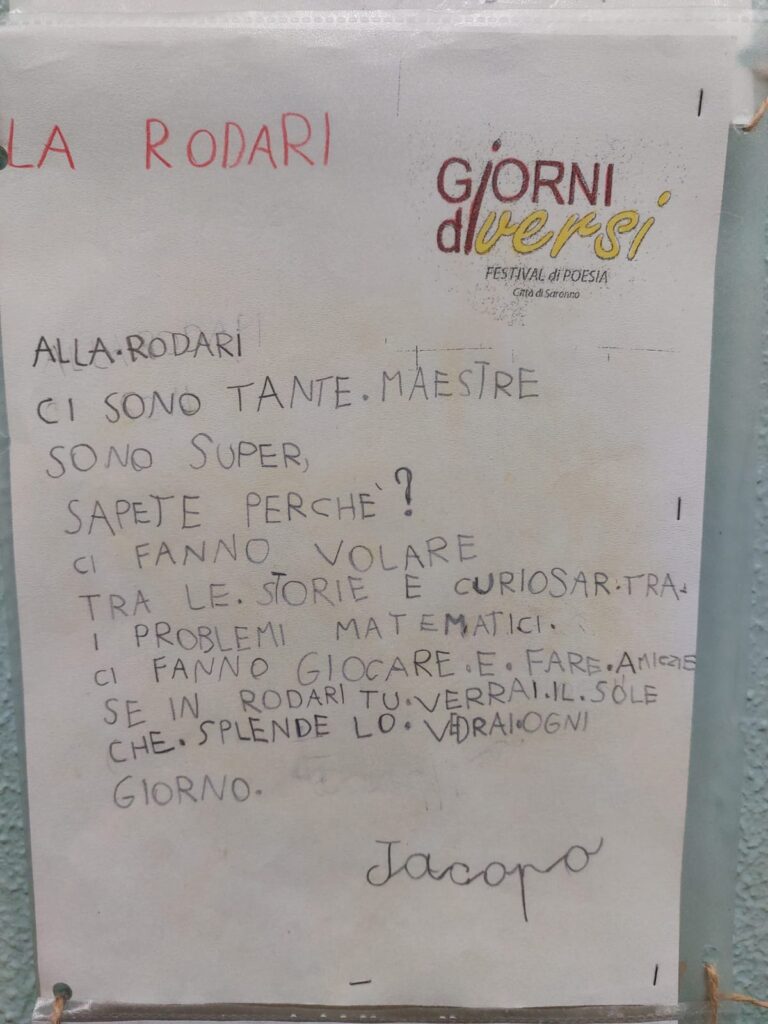 LA RODARI
GiORNI
diversi
FESTIVAL di POESIA
Città di Saronno
ALLA·RODARI
CI SONO TANTE·MAESTRE
SONO SUPER,
SAPETE PERCHÈ?
CI FANNO VOLARE
TRA LE·STORIE E CURIOSAR·TRA·
I PROBLEMI MATEMATICI·
CI FANNO GIOCARE·E·FARE·AMICIZIE
SE IN RODARI TU·VERRAI·IL·SOLE
CHE·SPLENDE LO·VEDRAI·OGNI
GIORNO·
Jacopo